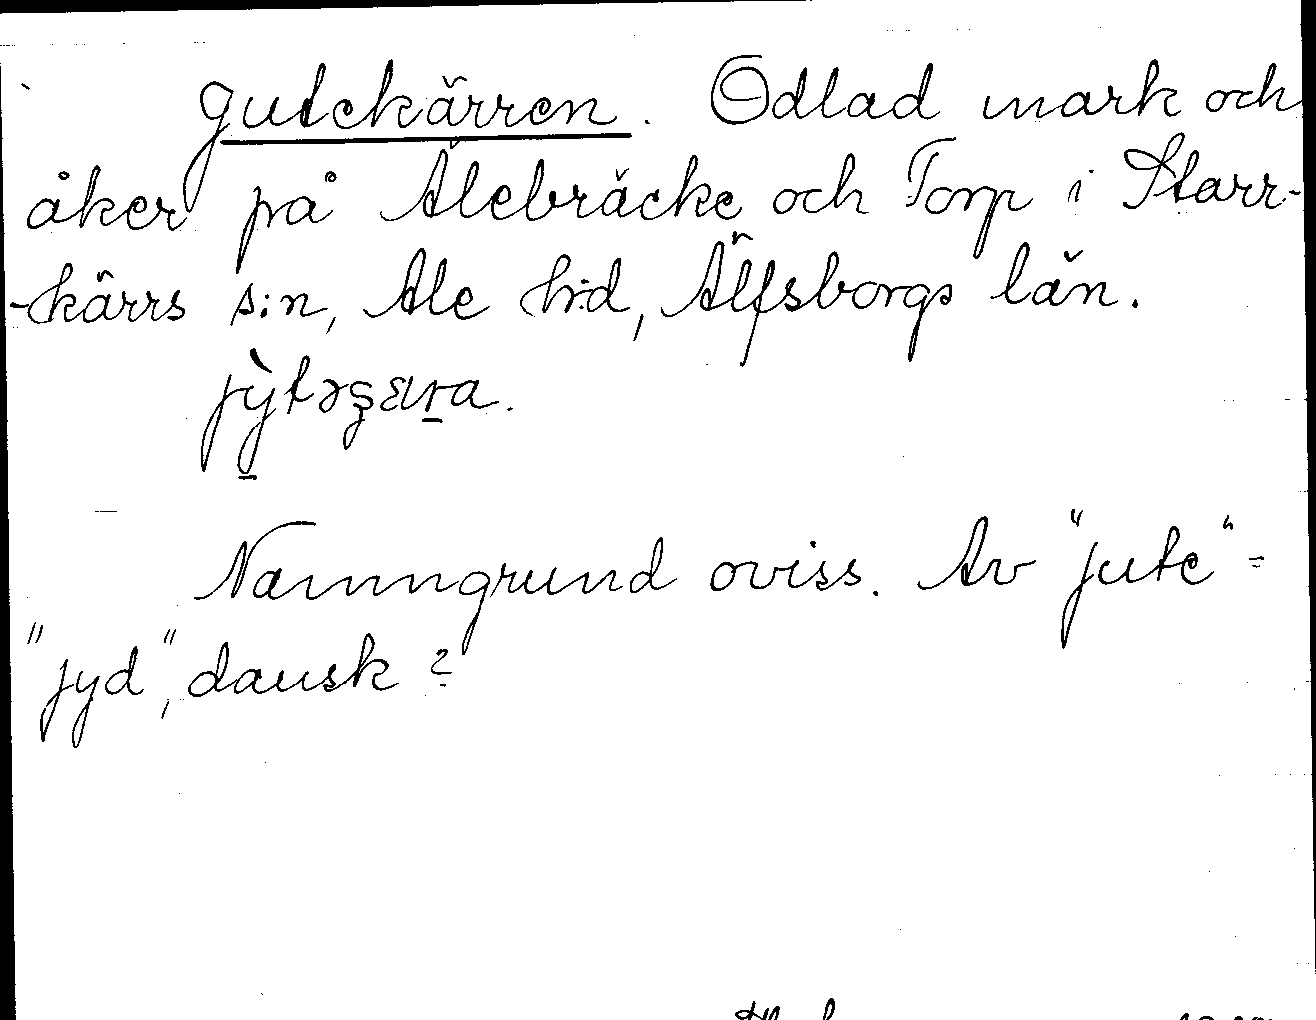 Jutekärren. Odlad mark och
åker på Älebräcke och Torp i Starr-
-kärrs s:n, Ale h:d, Älfsborgs län.
Namngrund oviss. Av "jute" =
"jyd", dansk?